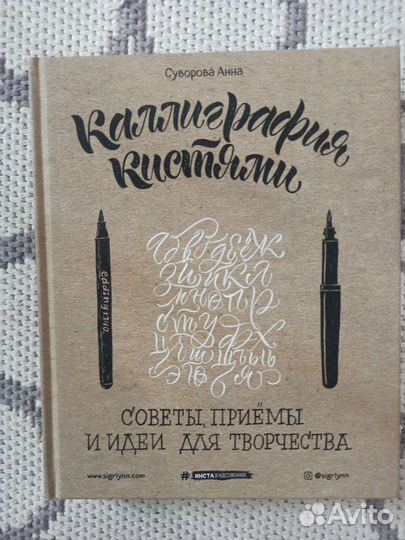 Суворова Анна
Каллиграфия
кистями
абвгдеёж
зийкл
мнопр
стуфх
цчшщъыь
эюя
edding 1340
СОВЕТЫ, ПРИЁМЫ
И ИДЕИ ДЛЯ ТВОРЧЕСТВА
www.sigrlynn.com
# ИНСТАХУДОЖНИК
@sigrlynn
Avito